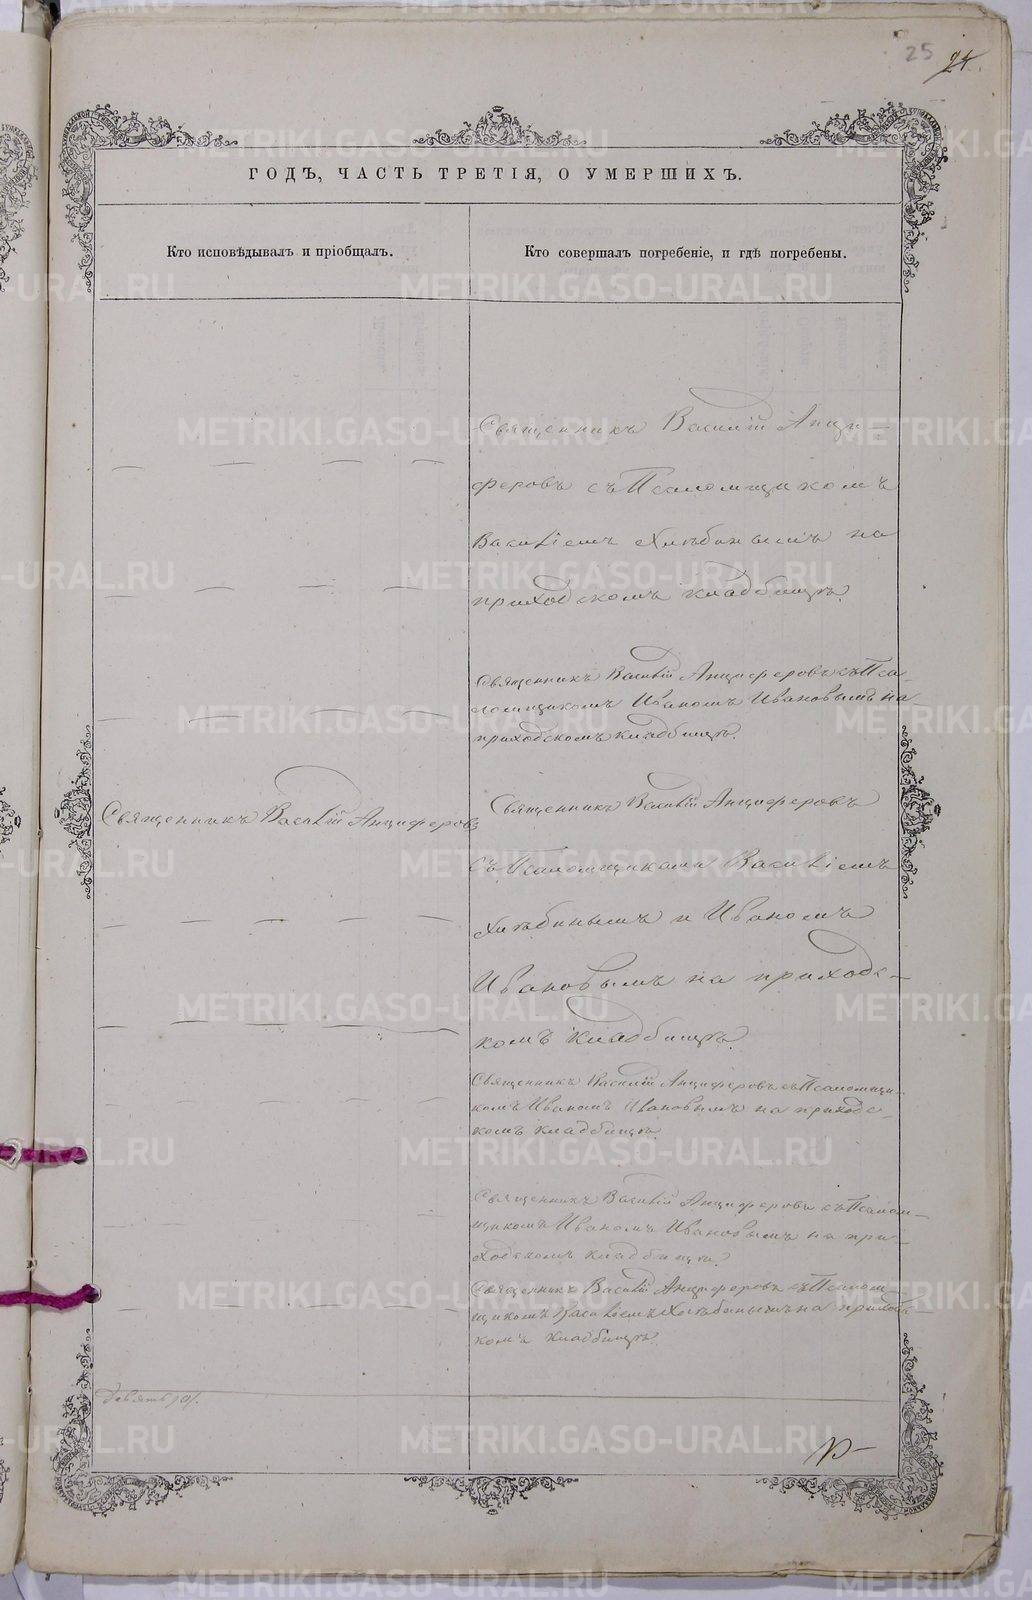 25 24.
ГОДЪ, ЧАСТЬ ТРЕТІЯ, О УМЕРШИХЪ.
Кто исповѣдывалъ и пріобщалъ.
Кто совершалъ погребеніе, и гдѣ погребены.
Священникъ Василій Анци-
феровъ съ Псаломщикомъ
Василіемъ Хлѣбинымъ на
приходскомъ кладбищѣ.
Священникъ Василій Анциферовъ съ Пса-
ломщикомъ Иваномъ Ивановымъ на
приходскомъ кладбищѣ.
Священникъ Василій Анциферовъ
Священникъ Василій Анциферовъ
съ Псаломщиками Василіемъ
Хлѣбинымъ и Иваномъ
Ивановымъ на приходс-
комъ кладбищѣ.
Священникъ Василій Анциферовъ съ Псаломщи-
комъ Иваномъ Ивановымъ на приходс-
комъ кладбищѣ.
Священникъ Василій Анциферовъ съ Псалом-
щикомъ Иваномъ Ивановымъ на при-
ходскомъ кладбищѣ.
Священникъ Василій Анциферовъ съ Псалом-
щикомъ Василіемъ Хлѣбинымъ на приходс
комъ кладбищѣ.
METRIKI.GASO-URAL.RU